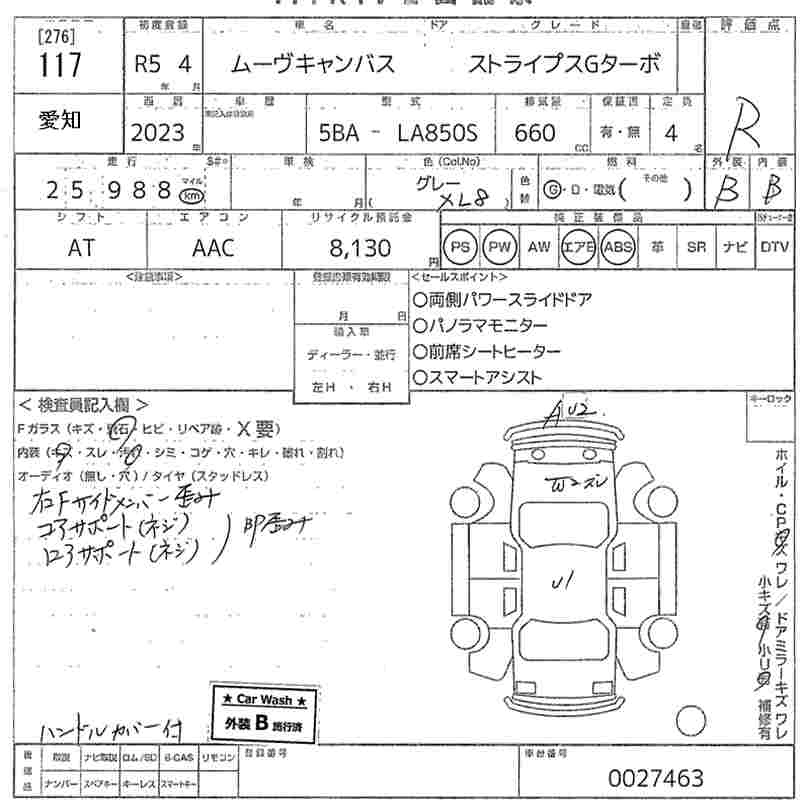 [276]
117
初度登録
R5 4
年 月
車名 ドア グレード
ムーヴキャンバス ストライプスGターボ
評価点
R
愛知
2023
年
車歴
型式
5BA - LA850S
排気量
660
CC
保証書
有・無
定員
4
名
走行
25,988
マイル
km
車検
年 月(
色(Col.No)
グレー
XL8
色替
燃料
G・D・電気( その他 )
外装
B
内装
B
シフト
AT
エアコン
AAC
リサイクル預託金
8,130
円
純正装備品
PS PW AW エアB ABS 革 SR ナビ DTV
<注意事項>
月 日
輸入車
ディーラー・並行
左H ・ 右H
<セールスポイント>
○両側パワースライドドア
○パノラマモニター
○前席シートヒーター
○スマートアシスト
<検査員記入欄>
Fガラス(キズ・飛石・ヒビ・リペア跡・X要)
内装(キズ・スレ・汚れ・シミ・コゲ・穴・キレ・破れ・割れ)
オーディオ(無し・穴)/タイヤ(スタッドレス)
右Fサイドメンバー歪み
コアサポート(ネジ)
ロアサポート(ネジ)
即歪み
AU2
W2ズレ
U1
キーロック
ホイル・CPキズワレ/ドアミラーキズワレ
補修有
ハンドルカバー付
★ Car Wash ★
外装 B 施行済
後備品
取説 ナビ取説 ロム/SD B-CAS リモコン
ナンバー スペアキー キーレス スマートキー
登録番号
車台番号
0027463